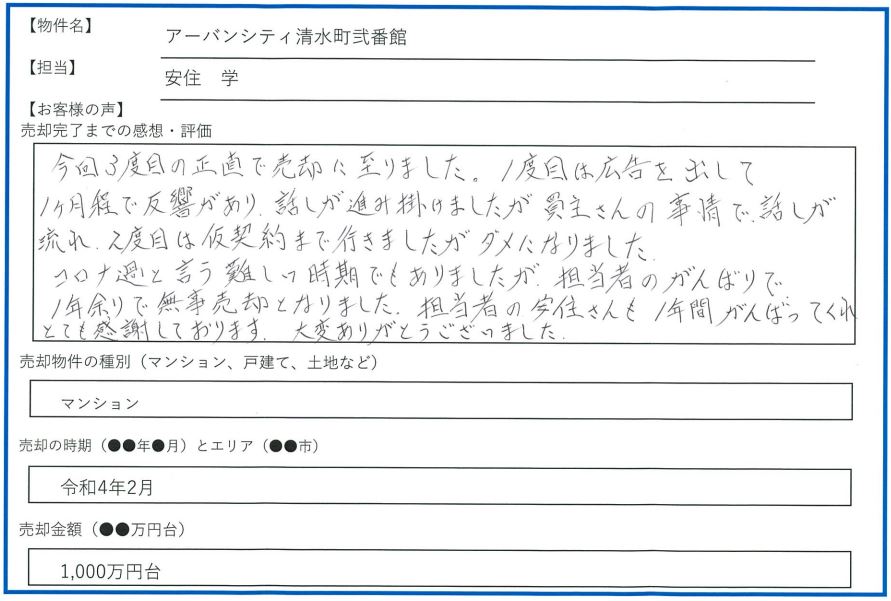 【物件名】
アーバンシティ清水町弐番館
【担当】
安住 学
【お客様の声】
売却完了までの感想・評価
今回3度目の正直で売却に至りました。1度目は広告を出して
1ヶ月程で反響があり、話しが進み掛けましたが買主さんの事情で、話しが
流れ、2度目は仮契約まで行きましたがダメになりました。
コロナ過と言う難しい時期でもありましたが、担当者のがんばりで
1年余りで無事売却となりました。担当者の安住さんも1年間がんばってくれ
とても感謝しております。大変ありがとうございました。
売却物件の種別（マンション、戸建て、土地など）
マンション
売却の時期（●●年●月）とエリア（●●市）
令和4年2月
売却金額（●●万円台）
1,000万円台